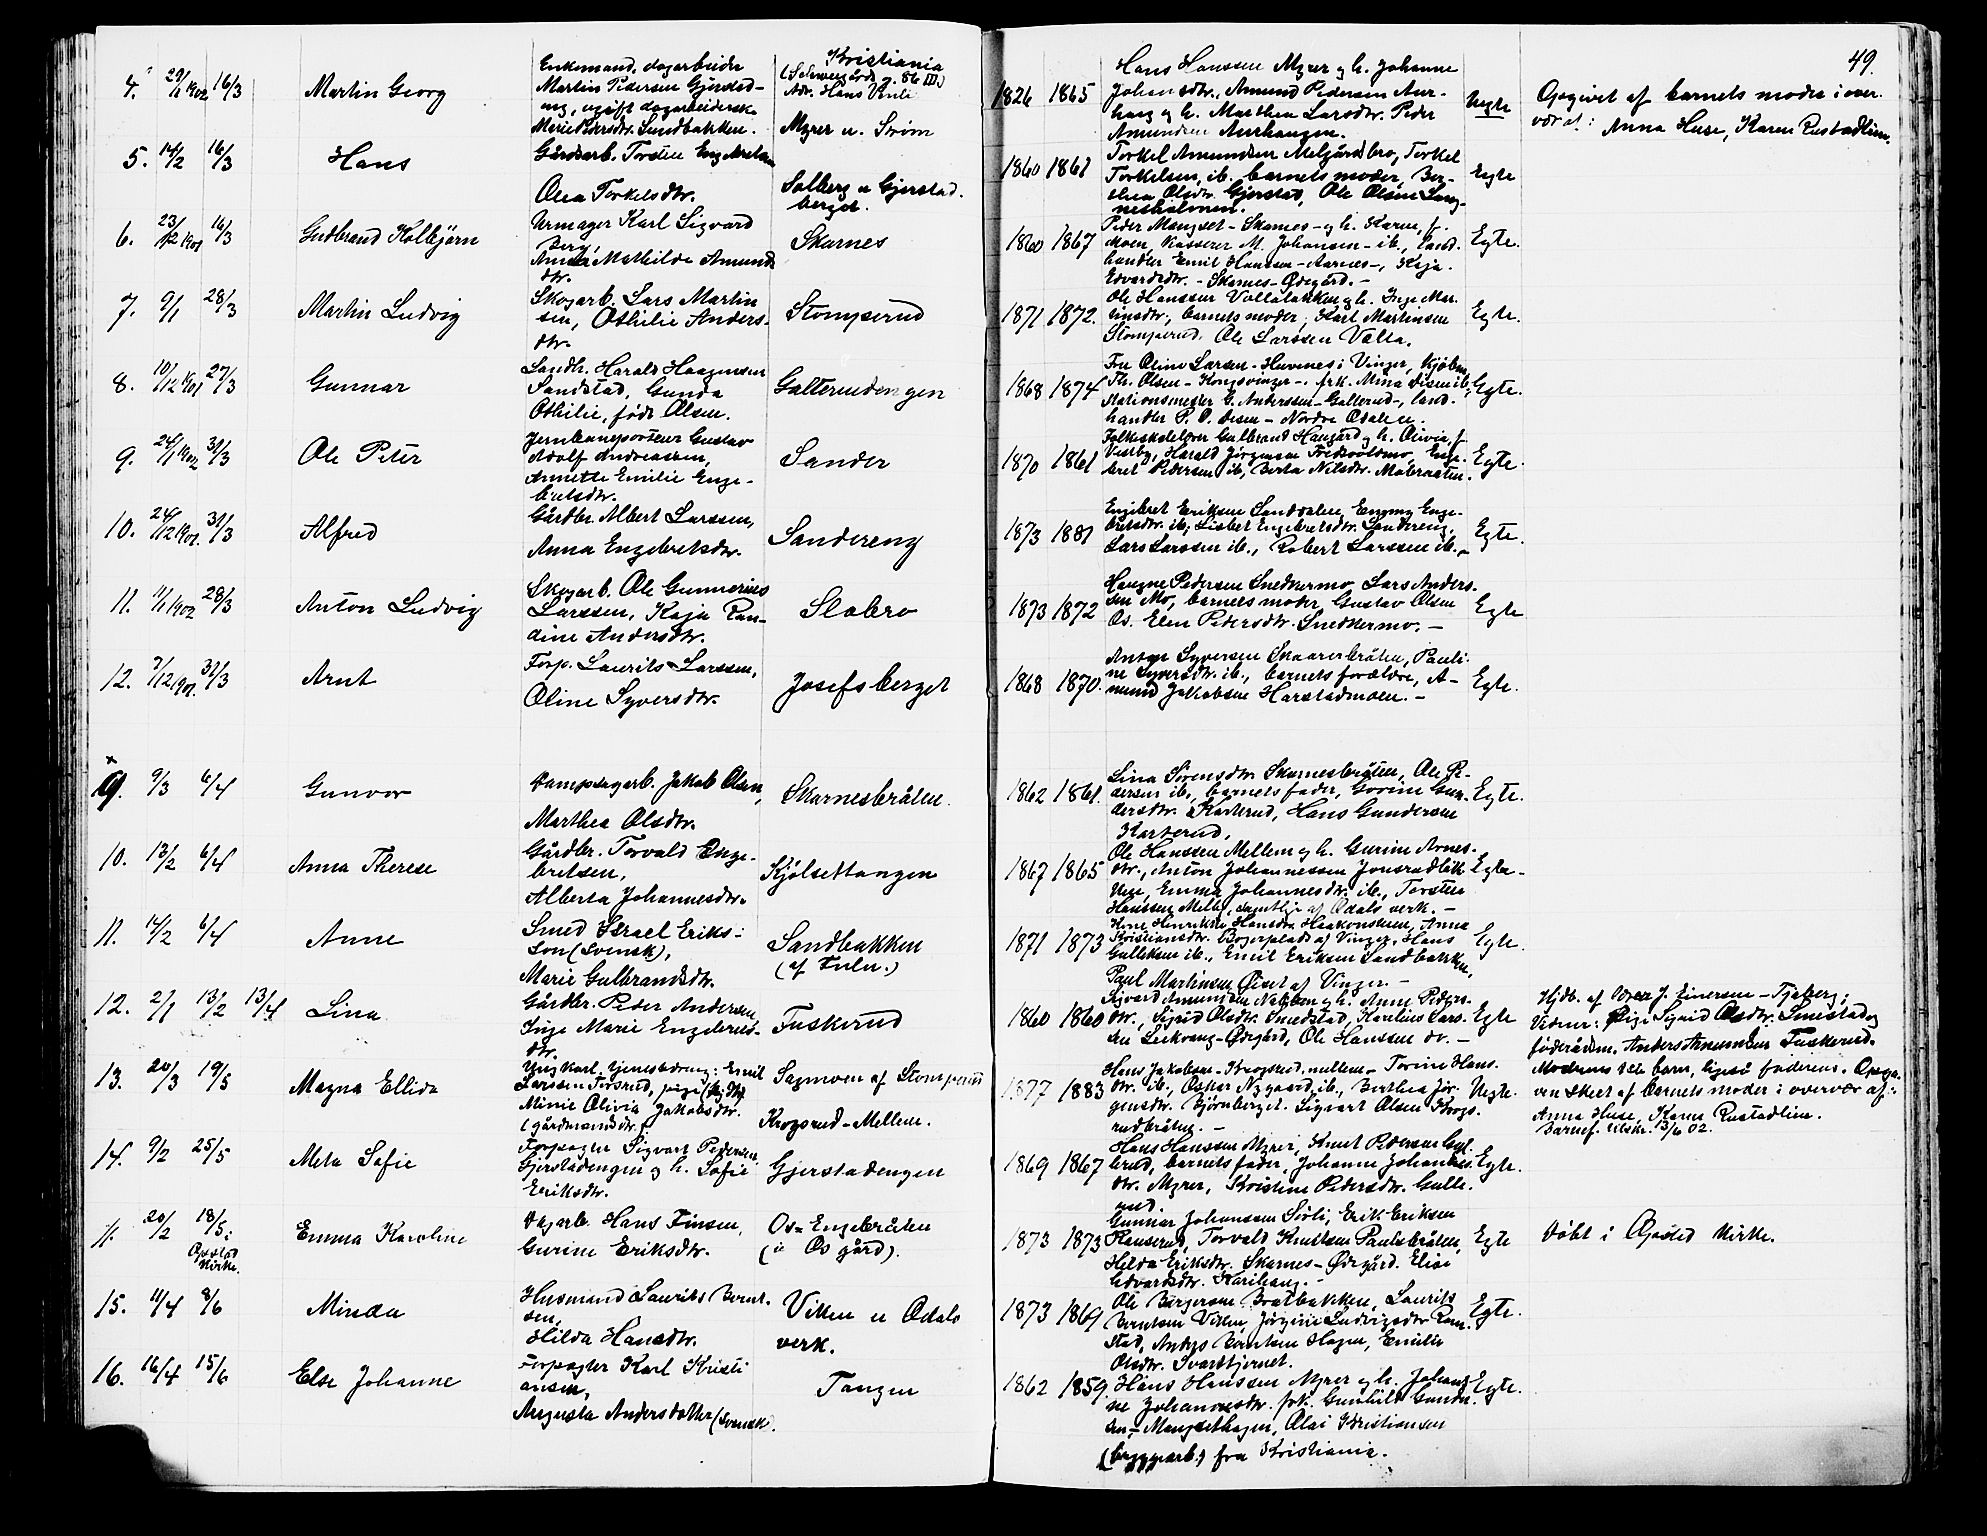 49.
4. 29/1 1902 16/3 Martin Georg
Enkemand, dagarbeider
Martin Pedersen Gjerstad-
eng, ugift dagarbeiderske
Marie Pedersdtr. Sundbakken.
Kristiania
Myrer u. Strøm
1826 1865
Hans Hanssen Myrer og h. Johanne
Johansdtr., Amund Pedersen Aur-
haug og h. Marthea Larsdtr. Peder
Amundsen Aurhaugen.
Uegte
Opgivet af barnets moder i over-
vær af: Anna Huse, Karen Rustadlien.
5. 14/2 16/3 Hans
Gårdarb. Torsten Engebretsen
Olea Torkelsdtr.
Solberg u Gjerstad
berget.
1860 1861
Torkel Amundsen Melgårdsbro, Torkel
Torkelsen, ib., barnets moder, Ber-
thea Olsdtr. Gjerstad, Ole Olsen
Egte
6. 23/12 1901 16/3 Gudbrand Kolbjørn
Urmager Karl Sigvard
Berg,
Anna Mathilde Amunds
dtr.
Skarnes
1860 1867
Peder Mangset - Skarnes - og h. Karen, f.
Moen, Kasserer M. Johansen - ib., land-
handler Emil Hanssen - Aarnes -, Kaja
Edvardsdtr. - Skarnes - Ødegård. -
Egte.
7. 9/1 28/3 Martin Ludvig
Skogarb. Lars Martin
sen, Othilie Anders-
dtr.
Stomperud
1871 1872.
Ole Hanssen Vallabakken og h. Inge Mar-
tinsdtr., barnets moder, Karl Martinsen
Stomperud. Ole Larssen Valla.
Egte.
8. 10/12 1901 27/3 Gunnar
Landh. Harald Haagensen
Sandstad, Gunda
Othilie, født Olsen.
Galterudengen
1868 1874
Fru Oline Larsen - Huvenes i Vinger, Kjøbm.
Th. Olsen - Kongsvinger -, frk. Mina Disen ib.,
Stationsmester G. Anderssen - Galterud -, land-
handler P. O. Disen - Nordre Odalen.
Egte.
9. 24/1 1902 31/3 Ole Peter
Jernbaneportør Gustav
Adolf Andreassen,
Annette Emilie Enge-
bretsdtr.
Sander
1870 1861
Folkeskolelærer Gulbrand Haugård og h. Olivia, f.
Vestby, Harald Jørgensen Fredsvoldmo, Enge-
bret Pedersen ib., Berta Nilsdtr. Mobråten.
Egte.
10. 24/12 1901. 31/3 Alfred
Gårdbr. Albert Larssen,
Anna Engebretsdtr.
Sandereng
1873 1881
Engebret Eriksen Sanddalen, Emmy Enge-
bretsdtr. ib., Lisbet Engebretsdtr. Sandereng,
Lars Larssen ib., Robert Larssen ib. -
Egte.
11. 11/1 1902 28/3 Anton Ludvig
Skogarb. Ole Gunnerius
Larssen, Kaja Ran-
dine Andersdtr.
Slobro
1873 1872
Haagne Pedersen Snedkermo, Lars Anders-
sen Mo, barnets moder, Gustav Olsen
Os. Elen Pedersdtr. Snedkermo. -
Egte
12. 7/12 1901. 31/3 Arnt
Forp. Laurits Larssen,
Oline Syversdtr.
Josefsberget
1868 1870.
Anton Syversen Skaarerbråten, Pauli-
ne Syversdtr. ib., barnets forældre, A-
mund Jakobsen Harstadmoen. -
Egte.
9. 9/3 6/4 Gunvor
Dampsagarb. Jakob Olsen,
Marthea Olsdtr.
Skarnesbråten.
1862 1861.
Lina Sørensdtr. Skarnesbråten, Ole Pe-
dersen ib., barnets fader, Gorine Gun-
dersdtr. Karterud, Hans Gundersen
Karterud.
Egte.
10. 13/2 6/4 Anna Therese
Gårdbr. Torvald Enge-
bretsen,
Alberta Johannesdtr.
Kjølsettangen
1867 1865
Ole Hanssen Mellem og h. Gurine Arnes-
dtr., Anton Johannessen Jonsrudbak-
ken, Emma Johannesdtr. ib., Torsten
Hanssen Mellem, samtlige af Odals verk. -
Egte -
11. 14/2 6/4 Anne
Smed Israel Eriks-
son (svensk),
Marie Gulbrandsdtr.
Sandbakken
1871 1873
Kristiansdtr. Bogerplads af Vinger, Hans
Gulliksen ib., Emil Eriksen Sandbakken,
Paul Martinsen Øiset af Vinger. -
Egte.
12. 2/1 13/2 13/4 Lina
Gårdbr. Peder Andersen
Inge Marie Engebrets-
dtr.
Fuskerud
1860 1860
Sigvard Amundsen Nabben og h. Anne Peders-
dtr., Sigrid Olsdtr. Smedstad, Karelius Lars-
sen Leikvang - Ødegård, Ole Hanssen do. -
Egte
Hjdb. af Lærer J. Einersen - Tjaberg;
Vidner: Pige Sigrid Olsdtr. Smestad og
føderådsm. Anders Amundsen Fuskerud.
13. 20/3 19/5 Magna Ellida
Ungkarl, tjenestedreng: Emil
Larssen Torsrud, pige
Minie Olivia Jakobsdtr.
(gårdmandsdtr.)
Sagmoen af Stomperud
Krogsrud - Mellem.
1877 1883
Hans Jakobsen - Krogsrud, mellem - Torine Hans-
dtr. ib., Oskar Nygaard ib., Berthea Jør-
gensdtr. Bjørnberget. Sigvart Olsen Krogs-
rudbråten. -
Uegte.
Moderens 1ste barn, ligeså faderens. Opga-
ven skeet af barnets moder i overvær af:
Anna Huse, Karen Rustadlien.
Barnef. tilskr. 13/6 02.
14. 9/2 25/5 Meta Sofie
Forpagter Sigvart Pedersen
Gjerstadengen og h. Sofie
Eriksdtr.
Gjerstadengen
1869 1867
Hans Hanssen Myrer, Knut Pedersen Gul-
lerud, barnets fader, Johanne Johannes-
dtr. Myrer, Kristine Pedersdtr. Gulle-
rud.
Egte.
11. 20/2 18/5 i
Opstad
Kirke.
Emma Karoline
Dagarb. Hans Finsen,
Gurine Eriksdtr.
Os = Engebråten
(u Os gård).
1873 1873
Gunnar Johanssen Sørli, Erik Eriksen
Torvald Knutsen Paulsbråten,
Hilda Eriksdtr. Skarnes - Ødegård. Elise
Edvardsdtr. Karihaug. -
Egte
Døbt i Opstad Kirke.
15. 11/4 8/6 Minda
Husmand Laurits Bernt-
sen,
Hilda Hansdtr.
Viken u Odals
verk.
1873 1869
Ole Børgersen Bratbakken, Laurits
Berntsen Viken, Jørgine Ludvigsdtr. Ram-
stad, Berntsen Hagen, Emilie
Olsdtr. Svarttjernet.
Egte.
16. 16/4 15/6 Else Johanne
Forpagter Karl Kristi
ansen,
Augusta Andersdatter (svensk).
Tangen
1862 1859.
Hans Hanssen Myrer og h. Johan-
ne Johannesdtr. frk. Gunhild Gunder-
sen - Mangsethagen, Olai Kristiansen
(byggearb.) fra Kristiania.
Egte.